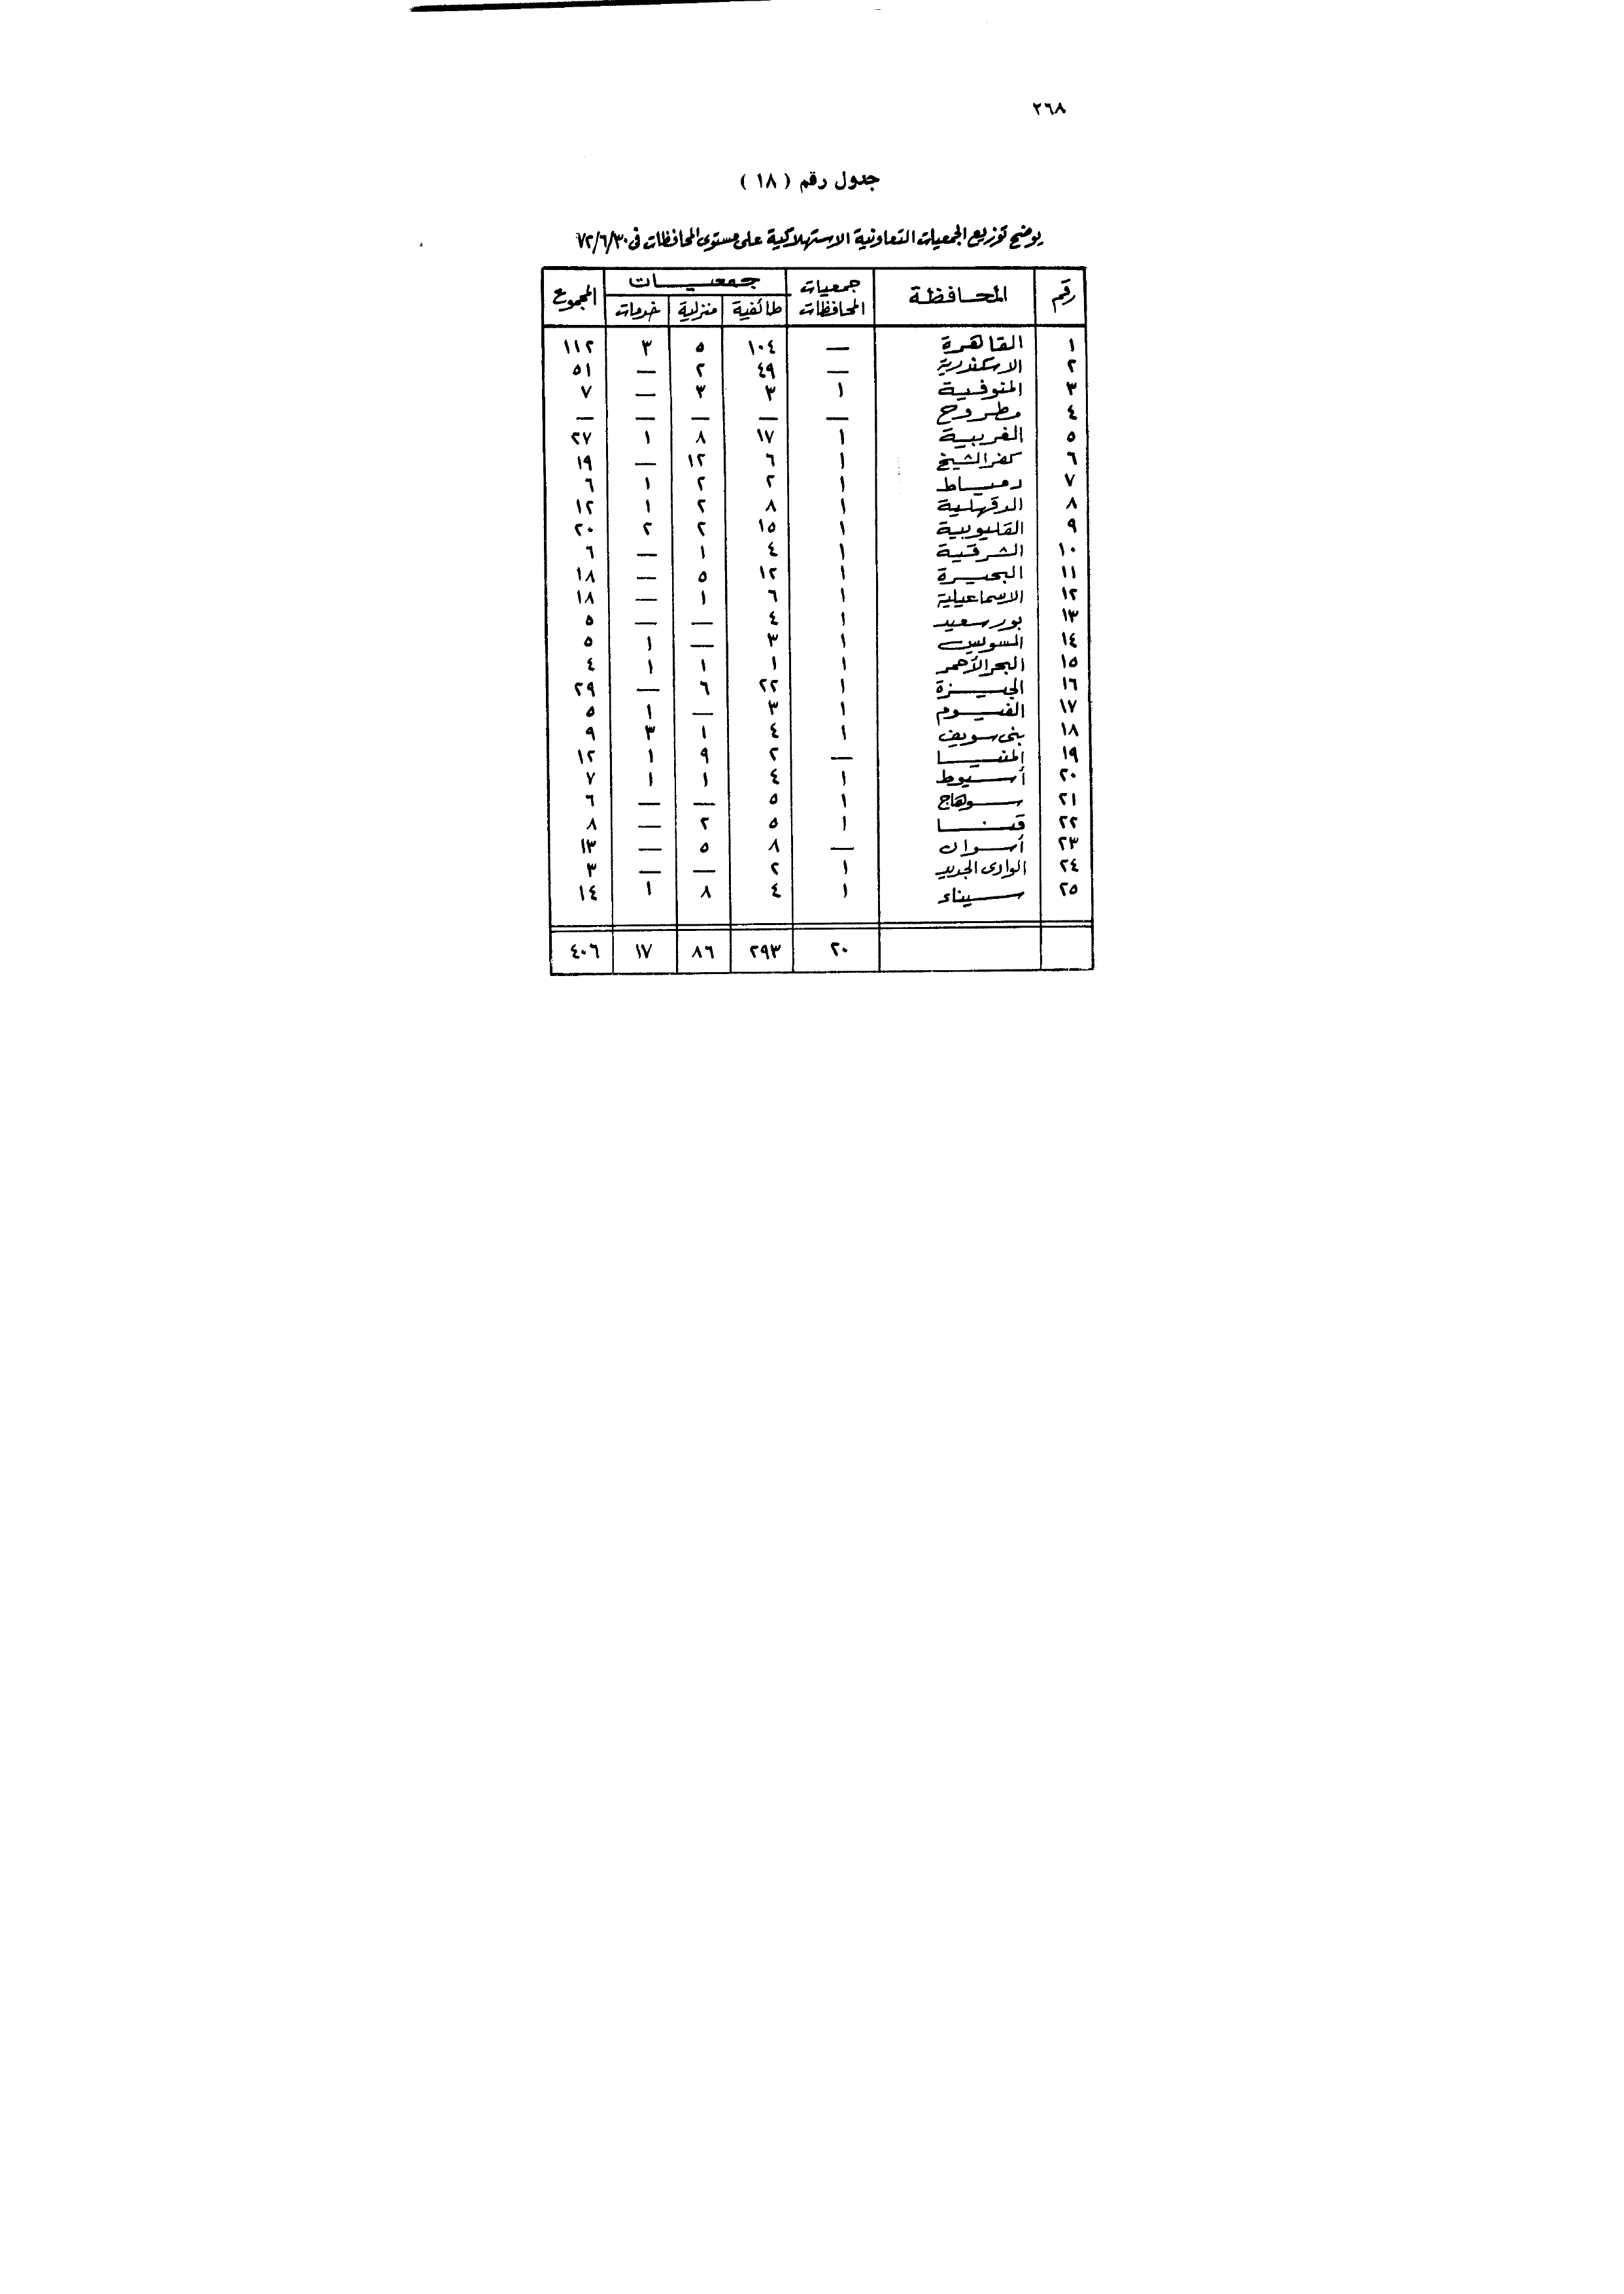 ٢٦٨
جدول رقم ( ١٨ )
يوضح توزيع الجمعيات التعاونية الاستهلاكية على مستوى المحافظات فى ٧٢/٦/٣٠
رقم المحافظة جمعيات المحافظات جمعيات المجموع
طائفية منزلية خدمات
١ القاهرة — ١٠٤ ٥ ٣ ١١٢
٢ الاسكندرية — ٤٩ ٢ — ٥١
٣ المنوفية ١ ٣ ٣ — ٧
٤ مطروح — — — — —
٥ الغربية ١ ١٧ ٨ ١ ٢٧
٦ كفر الشيخ ١ ٦ ١٢ — ١٩
٧ دمياط ١ ٢ ٢ ١ ٦
٨ الدقهلية ١ ٨ ٢ ١ ١٢
٩ القليوبية ١ ١٥ ٢ ٢ ٢٠
١٠ الشرقية ١ ٤ ١ — ٦
١١ البحيرة ١ ١٢ ٥ — ١٨
١٢ الاسماعيلية ١ ٦ ١ — ١٨
١٣ بورسعيد ١ ٤ — — ٥
١٤ السويس ١ ٣ — ١ ٥
١٥ البحر الأحمر ١ ١ ١ ١ ٤
١٦ الجيزة ١ ٢٢ ٦ — ٢٩
١٧ الفيوم ١ ٣ — ١ ٥
١٨ بنى سويف ١ ٤ ١ ٣ ٩
١٩ المنيا — ٢ ٩ ١ ١٢
٢٠ أسيوط ١ ٤ ١ ١ ٧
٢١ سوهاج ١ ٥ — — ٦
٢٢ قنا ١ ٥ ٢ — ٨
٢٣ أسوان — ٨ ٥ — ١٣
٢٤ الوادى الجديد ١ ٢ — — ٣
٢٥ سيناء ١ ٤ ٨ ١ ١٤
٢٠ ٢٩٣ ٨٦ ١٧ ٤٠٦